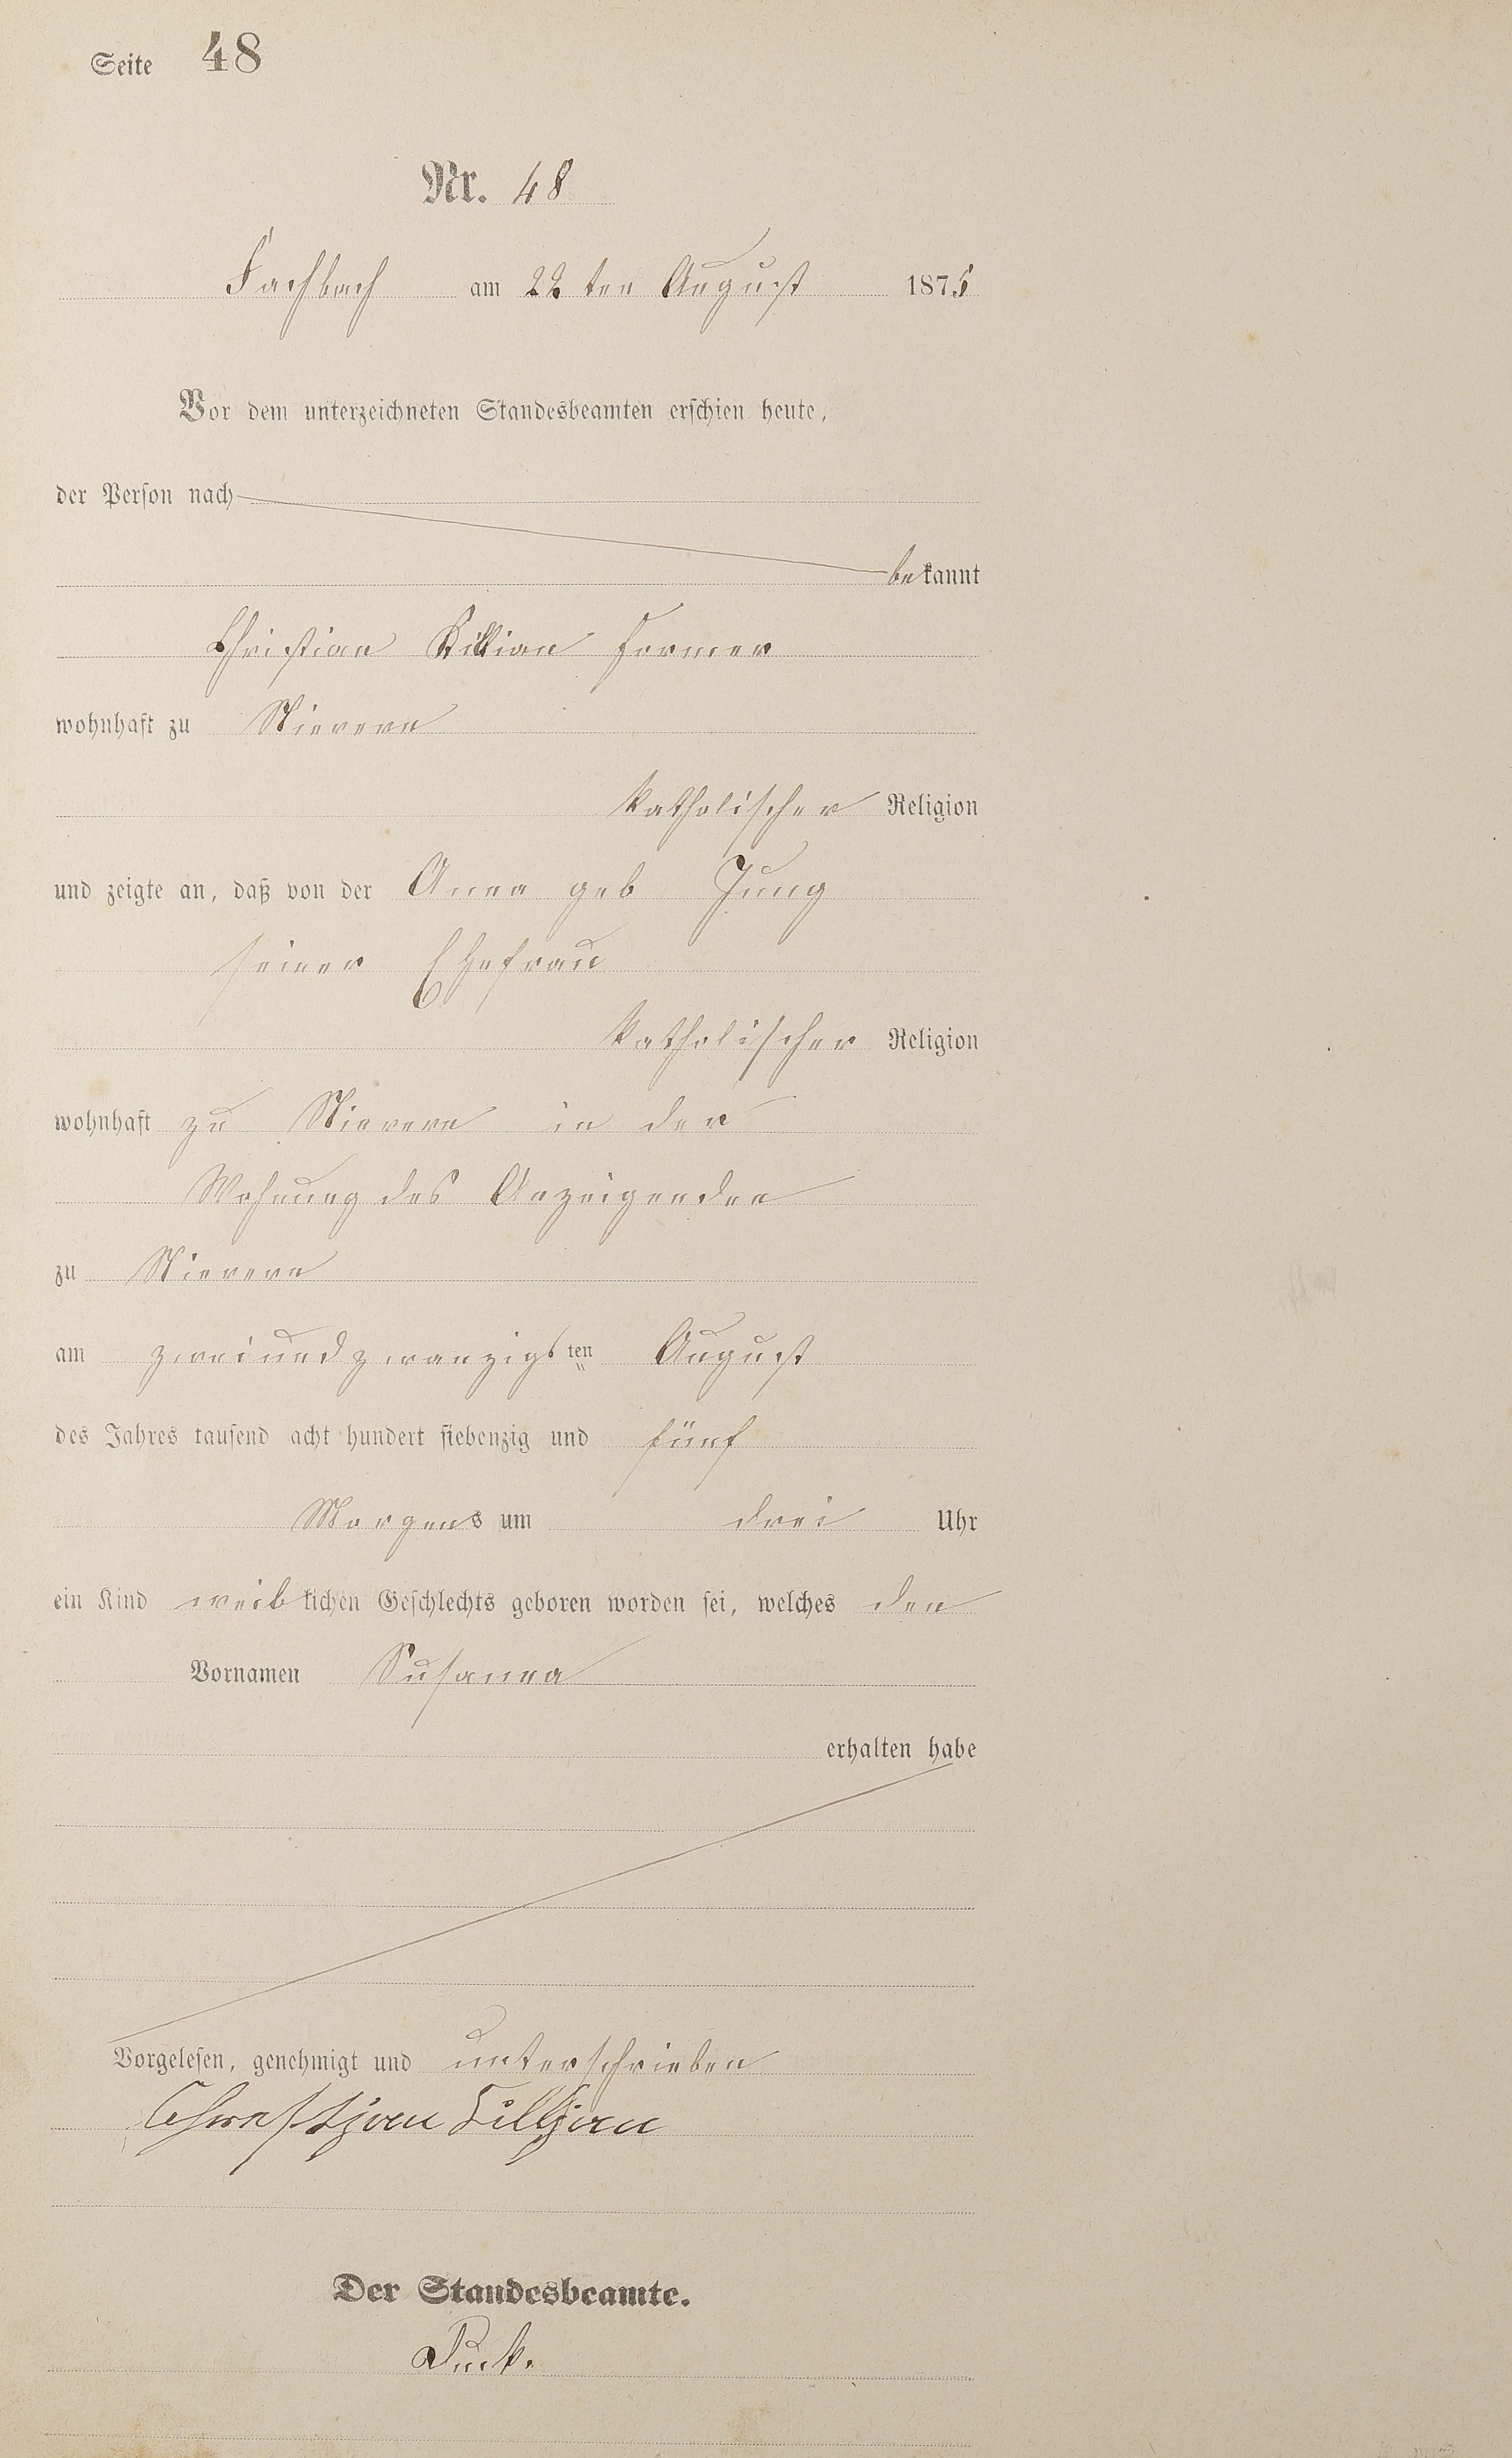 Seite 48
Nr. 48
Fachbach am 22 ten August 1875
Vor dem unterzeichneten Standesbeamten erschien heute,
der Person nach
bekannt
Christian Killian Former
wohnhaft zu Nievern
katholischer Religion
und zeigte an, daß von der Anna geb Jung
seiner Ehefrau
katholischer Religion
wohnhaft zu Nievern in der
Wohnung des Anzeigenden
zu Nievern
am zweiundzwanzigsten August
des Jahres tausend acht hundert siebenzig und fünf
Morgens um drei Uhr
ein Kind weiblichen Geschlechts geboren worden sei, welches den
Vornamen Susanna
erhalten habe
Vorgelesen, genehmigt und unterschrieben
Killjan
Der Standesbeamte.